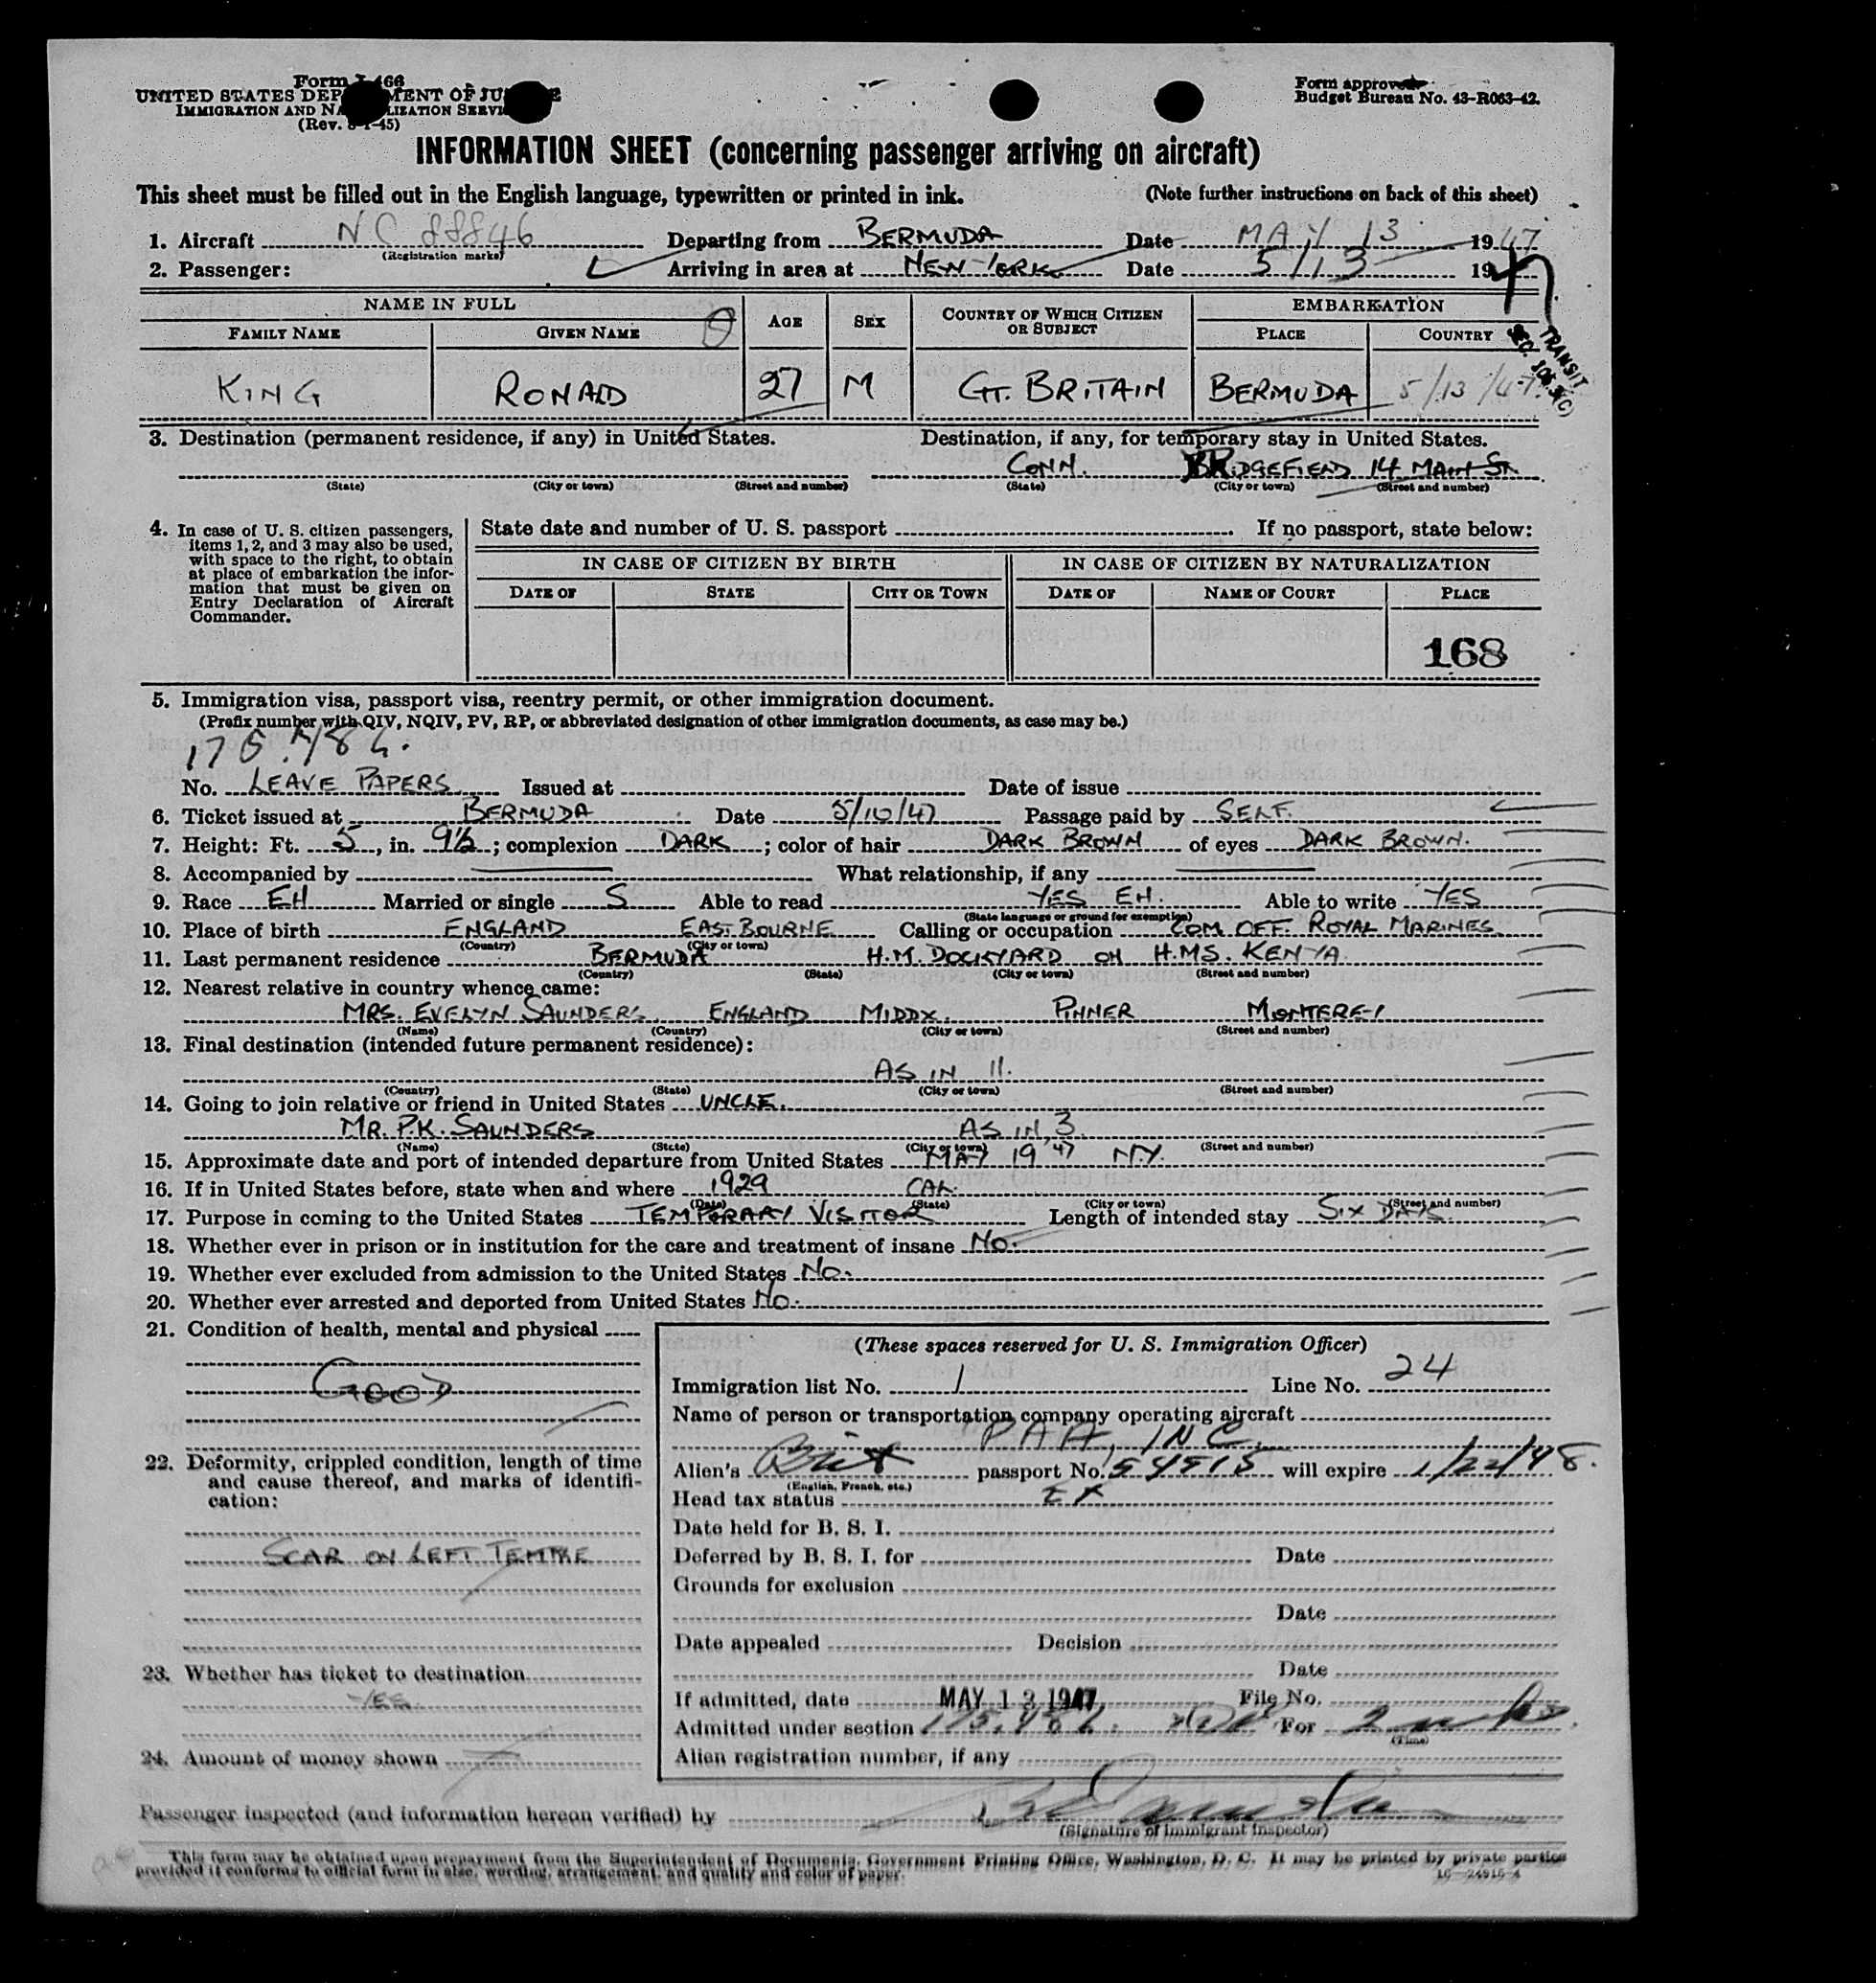 Form I-466
UNITED STATES DEP MENT OF JU E
IMMIGRATION AND NA LIZATION SERVI
(Rev. -1-45)
Form approved
Budget Bureau No. 43-R063-42.
INFORMATION SHEET (concerning passenger arriving on aircraft)
This sheet must be filled out in the English language, typewritten or printed in ink. (Note further instructions on back of this sheet)
1. Aircraft NC 88846 Departing from BERMUDA Date MAY 13 1947
(Registration marks)
2. Passenger: Arriving in area at NEW YORK Date 5/13 1947
TRANSIT
NAME IN FULL AGE SEX COUNTRY OF WHICH CITIZEN OR SUBJECT EMBARKATION
FAMILY NAME GIVEN NAME PLACE COUNTRY
KING RONALD 27 M GT. BRITAIN BERMUDA 5/13/47
3. Destination (permanent residence, if any) in United States. Destination, if any, for temporary stay in United States.
CONN. BRIDGEFIELD 14 MAIN ST.
(State) (City or town) (Street and number) (State) (City or town) (Street and number)
4. In case of U. S. citizen passengers, items 1, 2, and 3 may also be used, with space to the right, to obtain at place of embarkation the information that must be given on Entry Declaration of Aircraft Commander.
State date and number of U. S. passport If no passport, state below:
IN CASE OF CITIZEN BY BIRTH IN CASE OF CITIZEN BY NATURALIZATION
DATE OF STATE CITY OR TOWN DATE OF NAME OF COURT PLACE
168
5. Immigration visa, passport visa, reentry permit, or other immigration document.
(Prefix number with QIV, NQIV, PV, RP, or abbreviated designation of other immigration documents, as case may be.)
No. LEAVE PAPERS Issued at Date of issue
6. Ticket issued at BERMUDA Date 5/10/47 Passage paid by SELF.
7. Height: Ft. 5, in. 9½; complexion DARK; color of hair DARK BROWN of eyes DARK BROWN.
8. Accompanied by What relationship, if any
9. Race EH Married or single S Able to read YES EH. Able to write YES
(State language or ground for exemption)
10. Place of birth ENGLAND EASTBOURNE Calling or occupation COM. OFF. ROYAL MARINES.
(Country) (City or town)
11. Last permanent residence BERMUDA H.M. DOCKYARD OH H.MS. KENYA.
(Country) (State) (City or town) (Street and number)
12. Nearest relative in country whence came:
MRS. EVELYN SAUNDERS ENGLAND MIDDX. PINNER MONTEREY
(Name) (Country) (City or town) (Street and number)
13. Final destination (intended future permanent residence):
AS IN 11.
(Country) (State) (City or town) (Street and number)
14. Going to join relative or friend in United States UNCLE.
MR. P.K. SAUNDERS AS IN 3.
(Name) (State) (City or town) (Street and number)
15. Approximate date and port of intended departure from United States MAY 19 '47 N.Y.
16. If in United States before, state when and where 1929 CAL.
(Date) (State) (City or town) (Street and number)
17. Purpose in coming to the United States TEMPORARY VISITOR Length of intended stay SIX DAYS.
18. Whether ever in prison or in institution for the care and treatment of insane NO.
19. Whether ever excluded from admission to the United States NO.
20. Whether ever arrested and deported from United States NO.
21. Condition of health, mental and physical
GOOD
22. Deformity, crippled condition, length of time and cause thereof, and marks of identification:
SCAR ON LEFT TEMPLE
23. Whether has ticket to destination
YES.
24. Amount of money shown
(These spaces reserved for U. S. Immigration Officer)
Immigration list No. 1 Line No. 24
Name of person or transportation company operating aircraft
PAA, INC.
Alien's Brit passport No. 54515 will expire 1/22/48.
(English, French, etc.)
Head tax status EX
Date held for B. S. I.
Deferred by B. S. I. for Date
Grounds for exclusion
Date
Date appealed Decision
Date
If admitted, date MAY 13 1947 File No.
Admitted under section For
(Time)
Alien registration number, if any
Passenger inspected (and information hereon verified) by
(Signature of immigrant inspector)
This form may be obtained upon prepayment from the Superintendent of Documents, Government Printing Office, Washington, D. C. It may be printed by private parties
provided it conforms to official form in size, wording, arrangement, and quality and color of paper.
16-24916-4